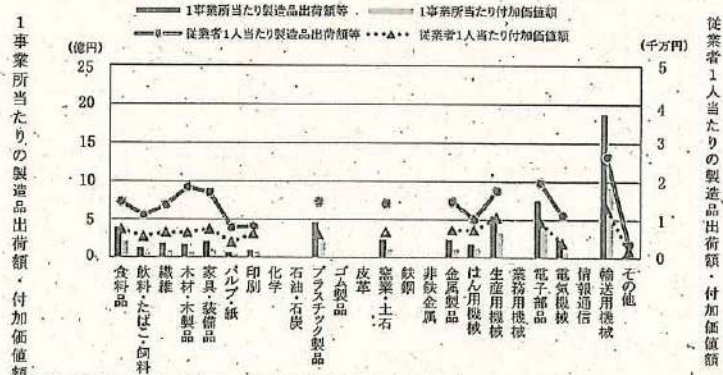 1事業所当たり製造品出荷額等
1事業所当たり付加価値額
従業者1人当たり製造品出荷額等
従業者1人当たり付加価値額
(億円)
(千万円)
1事業所当たりの製造品出荷額・付加価値額
25
20
15
10
5
0
5
4
3
2
1
0
従業者1人当たりの製造品出荷額・付加価値額
食料品
飲料・たばこ・飼料
繊維
木材・木製品
家具・装備品
パルプ・紙
印刷
化学
石油・石炭
プラスチック製品
ゴム製品
皮革
窯業・土石
鉄鋼
非鉄金属
金属製品
はん用機械
生産用機械
業務用機械
電子部品
電気機械
情報通信
輸送用機械
その他